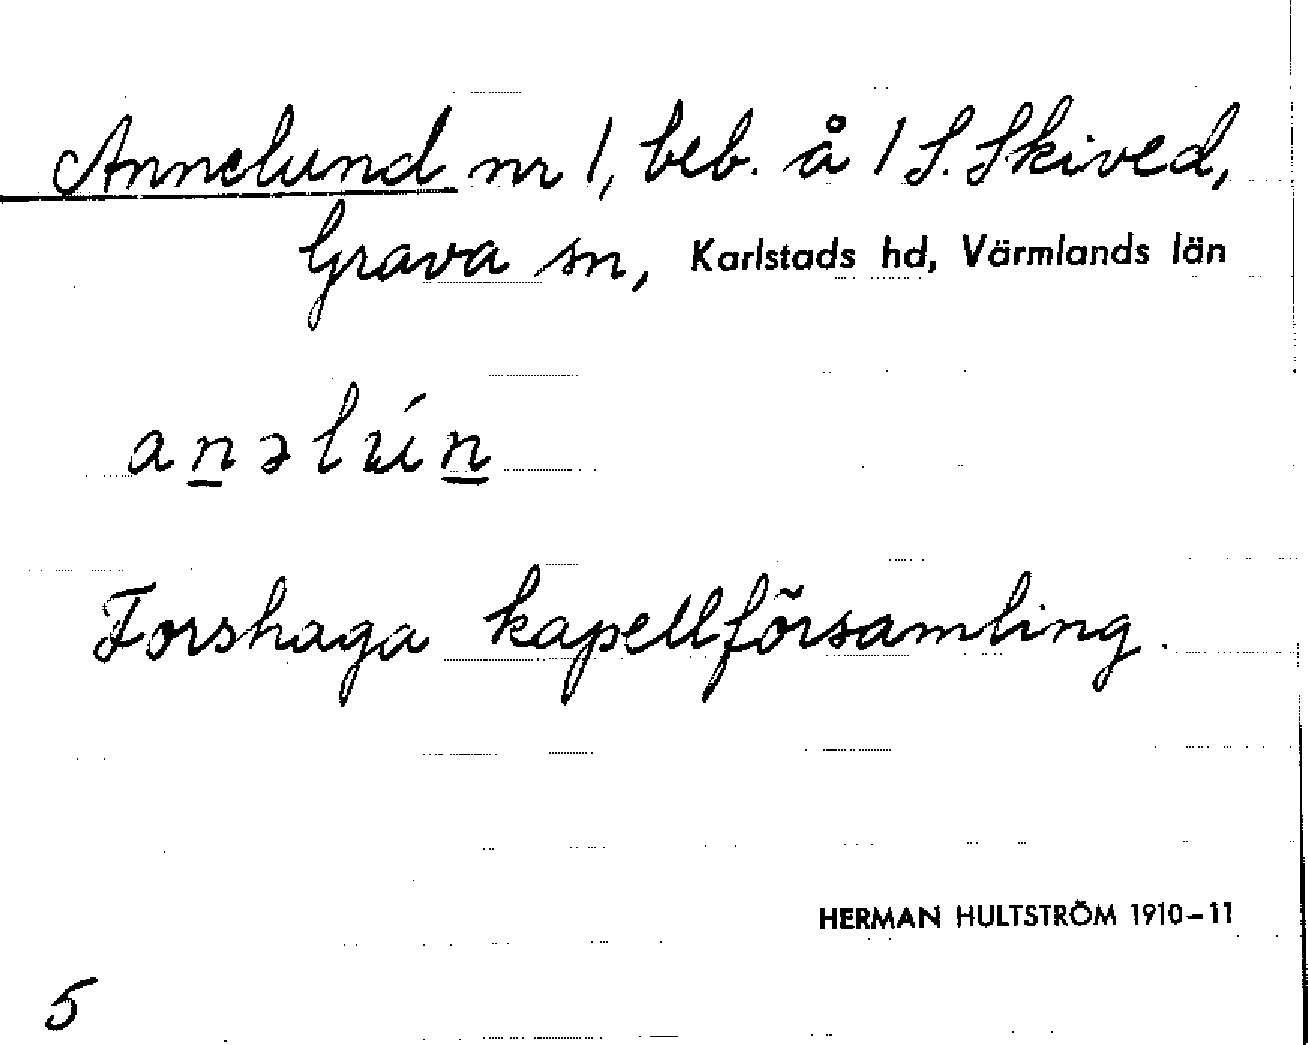 Annelund nr 1, beb. å 1 S. Skived,
Grava sn, Karlstads hd, Värmlands län
an̲əlún̲
Forshaga kapellförsamling.
HERMAN HULTSTRÖM 1910-11
5